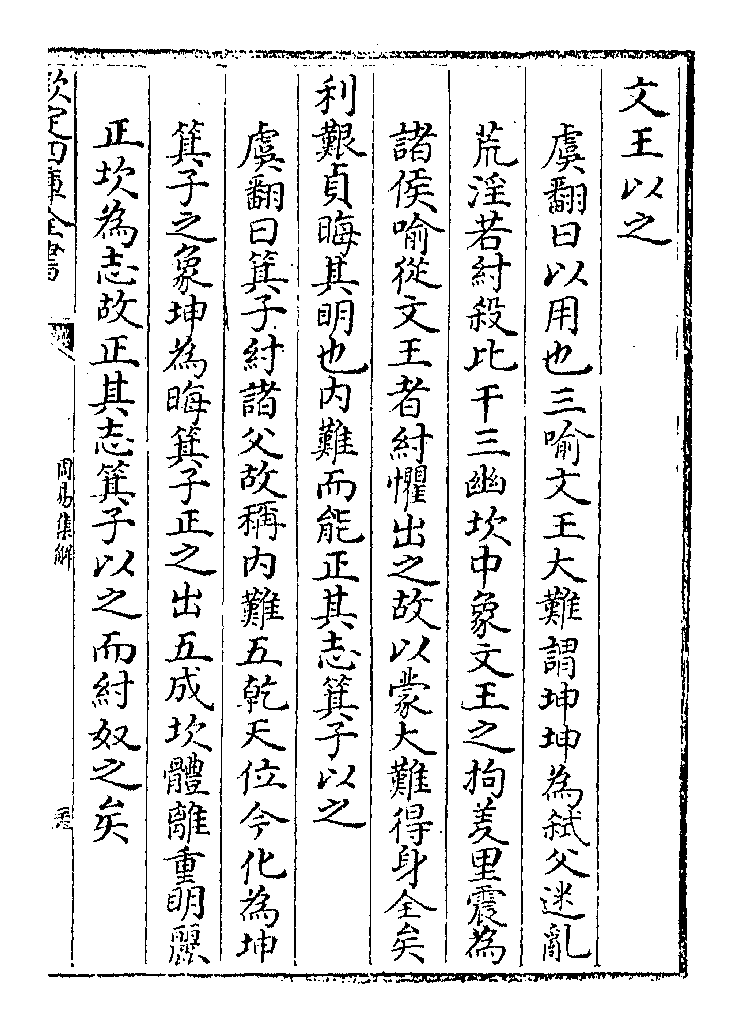 文王以之
虞翻曰以用也三喻文王大難謂坤坤為弑父迷亂
荒淫若紂殺比干三幽坎中象文王之拘羑里震為
諸侯喻從文王者紂懼出之故以蒙大難得身全矣
利艱貞晦其明也内難而能正其志箕子以之
虞翻曰箕子紂諸父故稱内難五乾天位今化為坤
箕子之象坤為晦箕子正之出五成坎體離重明麗
正坎為志故正其志箕子以之而紂奴之矣
欽定四庫全書
周易集解